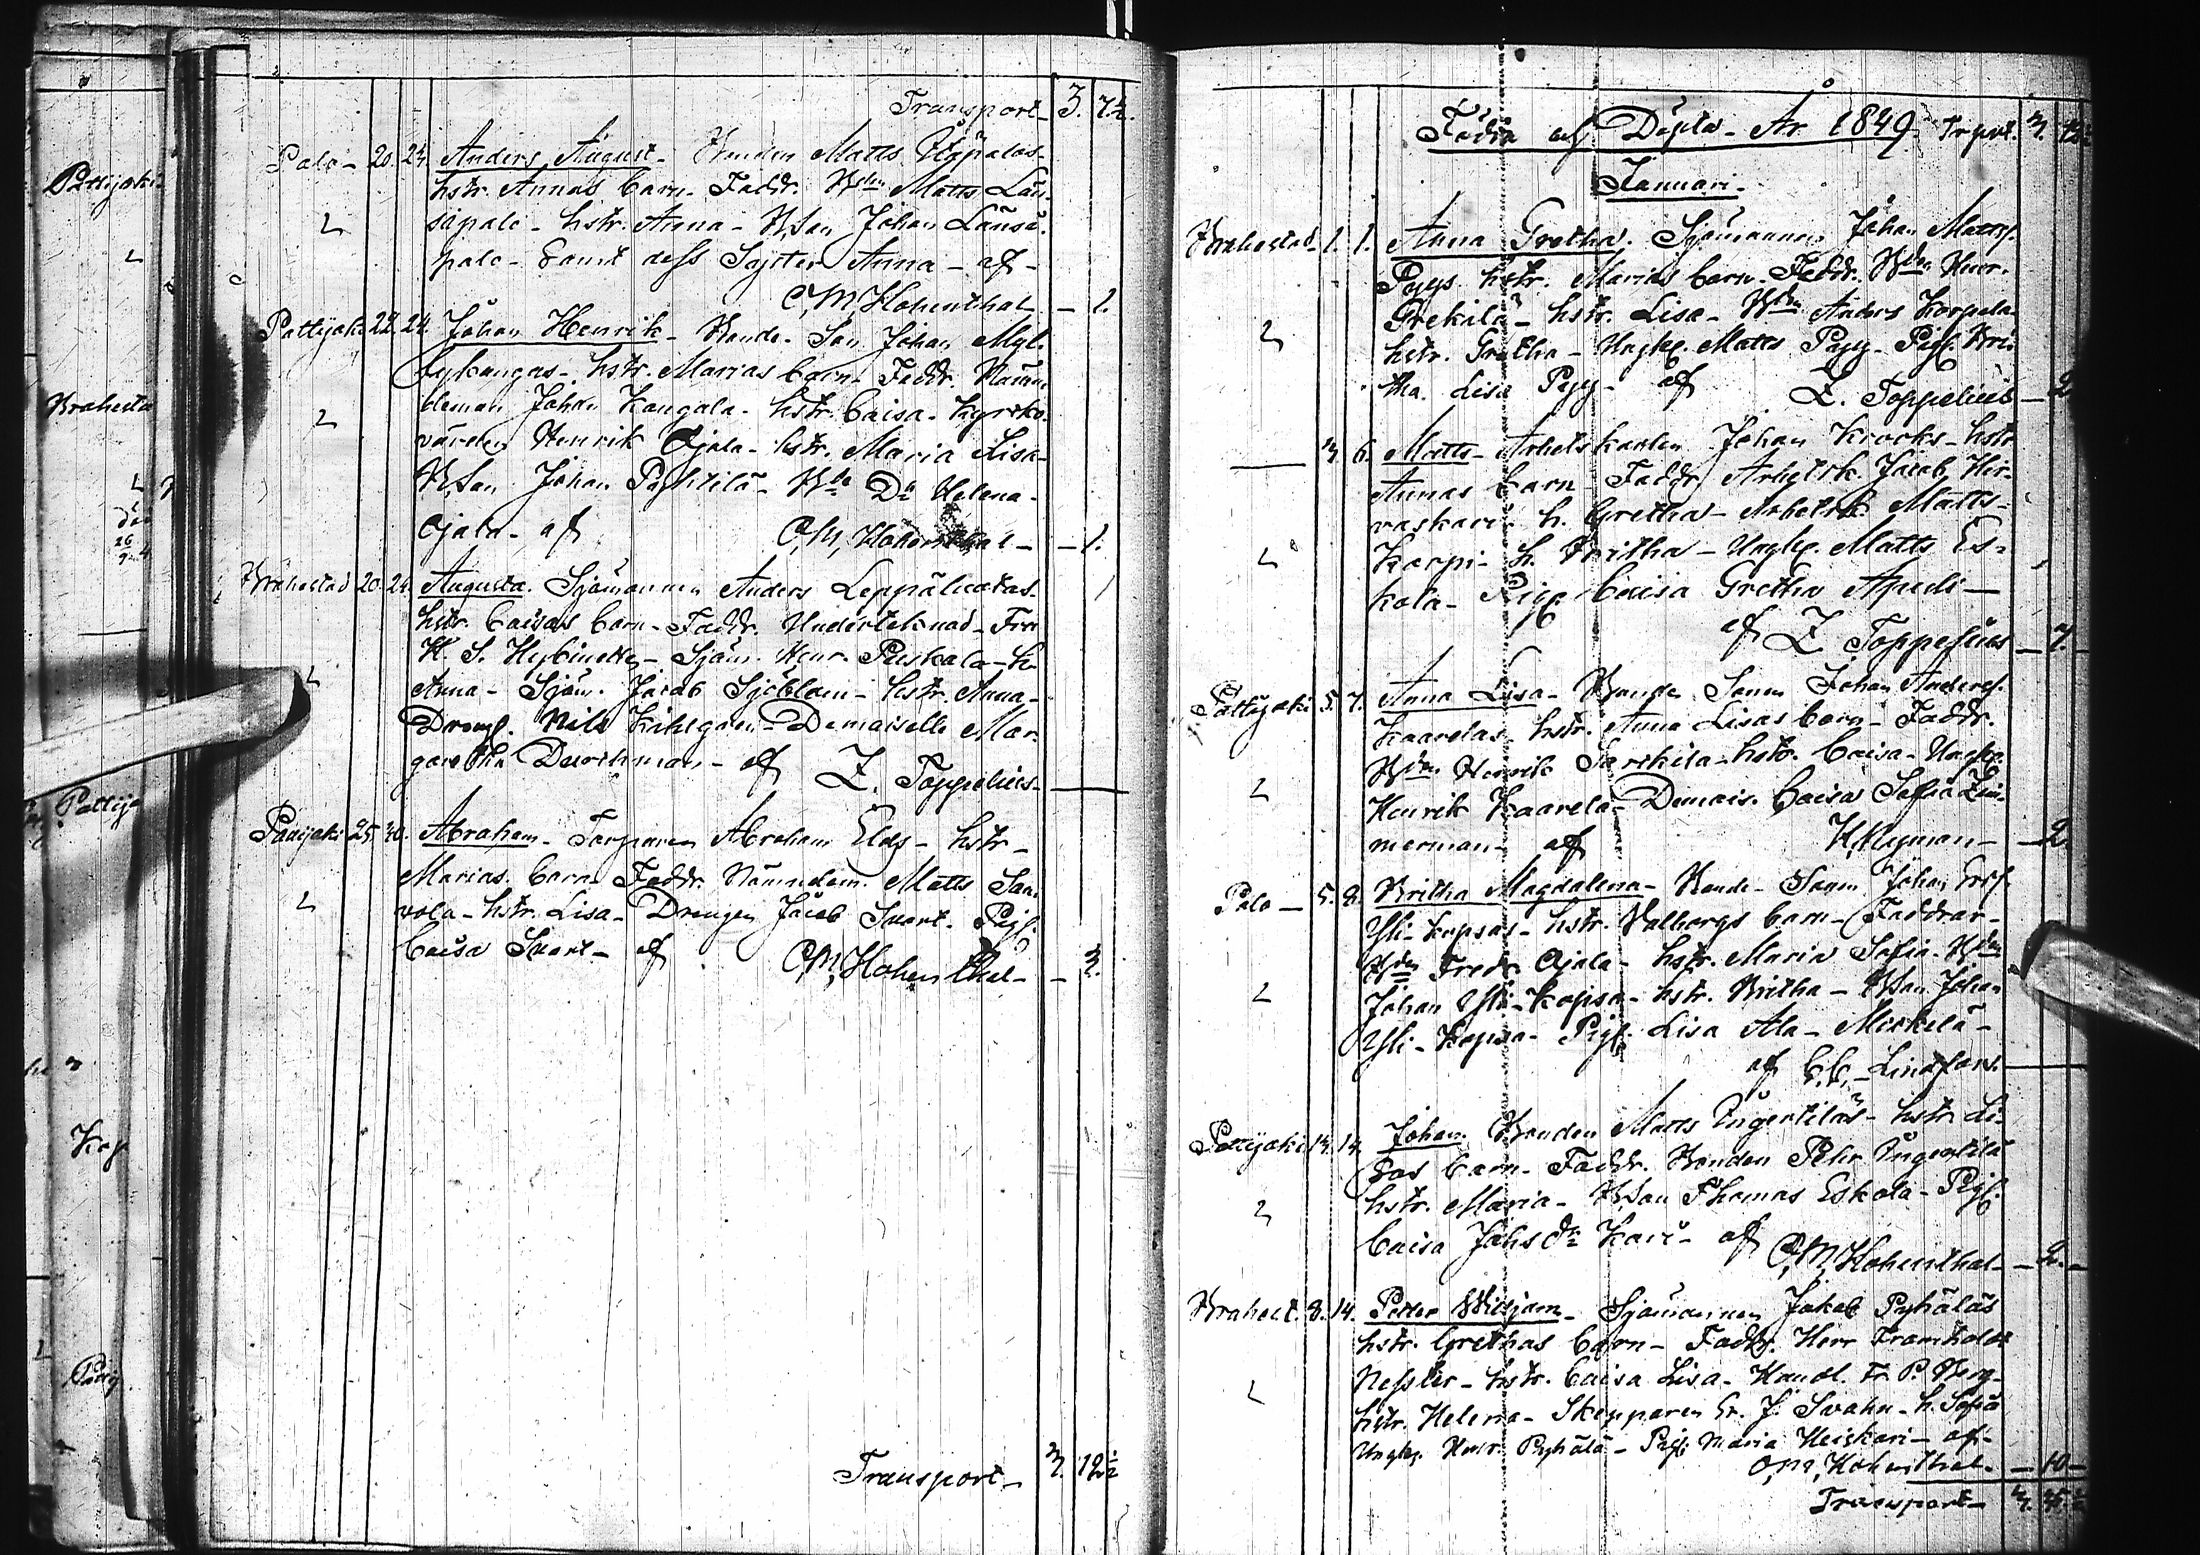 Transport 3. 7½.
Palo - 20. 24. Anders August - Bonden Matts Uopalas -
hstr. Annas barn - Faddr. Bden Matts Län-
säpalo - hstr. Anna - BSon Johan Länsä-
palo - Samt dess Syster Anna - af -
C.M. Hohenthal - 1.
Pattijoki 22. 24. Johan Henrik - Bonde Son Johan Myl-
lykangas - hstr. Marias barn - Faddr. Nämn-
deman Johan Kangala - hstr. Caisa - Kyrko-
värden Henrik Ojala - hstr. Maria Lisa -
BSon Johan Pehtilä - Bde Dr Helena
Ojala - af C.M. Hohenthal - 1.
Brahestad 20. 24. Augusta - Sjömannen Anders Leppäluotos
hstr. Caisas barn - Faddr. Undertecknad - Fru
H. S. Hybinette - Sjöm. Henr. Piuskala - h.
Anna - Sjöm. Jacob Sjöblom - hstr. Anna -
Dreng. Nils Kihlgren - Demoiselle Mar-
garetha Durchman - af Z. Toppelius -
Pattijoki 25. 30. Abraham - Torparen Abraham Elds - hstr -
Marias barn - Faddr. Nämndem. Matts Sa-
vola - hstr. Lisa - Drengen Jacob Svart - Pig.
Caisa Svart - af C.M. Hohenthal - 3.
Transport - 3. 12½
Födde och Döpta - År 1849 Trport. 3. 12½
Januari -
Brahestad 1. 1. Anna Gretha. Sjömannen Johan Mattss.
Pyys hstr. Marias barn - Faddr. Bden Henr.
Grekilä - hstr. Lisa - Bden Anders Korpela
hstr. Gretha - Ungk. Matts Pyy - Pig. Bri-
tha Lisa Pyy - af Z. Toppelius - 2
3. 6. Matts - Arbetskarlen Johan Krooks - hstr
Annas barn Faddr. Arbetsk. Jacob Hir-
vaskari h. Gretha - Arbetsk. Matts
Karpi - h. Britha - Ungk. Matts Es-
kola - Pig. Caisa Gretha
af Z. Toppelius - 7.
Pattijoki 5. 7. Anna Lisa - Bonde Sonen Johan Anderss.
Kaarelas hstr. Anna Lisas barn - Faddr.
Bden Henrik Sarkila - hstr. Caisa - Ungk.
Henrik Kaarela - Demois. Caisa Sofia Zim-
merman - af H. Nyman - 2.
Palo - 5. 8. Britha Magdalena - Bonde - Sonen Johan Ers.
Yli-Kopsas - hstr. Valborgs barn - Faddrar -
Bden Fredr. Ojala - hstr. Maria Sofia - Bden
Johan Yli-Kopsa - hstr. Britha - BSon Johan
Yli-Kopsa - Pig. Lisa Ala-Mickelä -
af C.C. Lindfors.
Pattijoki 13. 14. Johan Bonden Matts Ingertiläs - hstr. Li-
sas barn - Faddr. Bonden Pehr Ingertilä
hstr. Maria - BSon Thomas Eskola - Pig.
Caisa Johs dr Kari - af C.M. Hohenthal - 2.
Brahest. 8. 14. Petter Wiljam - Sjömannen Jakob Pyhäläs
hstr. Grethas barn - Faddr. Herr Framholdt
Nessler - hstr. Caisa Lisa - Handl. Fr. P. Berg -
hstr. Helena - Skepparen Er. J. Svahn - h. Sofia
Ungk. Henr. Pyhälä - Pig. Maria Heiskari - af -
C.M. Hohenthal - 10 -
Transport -